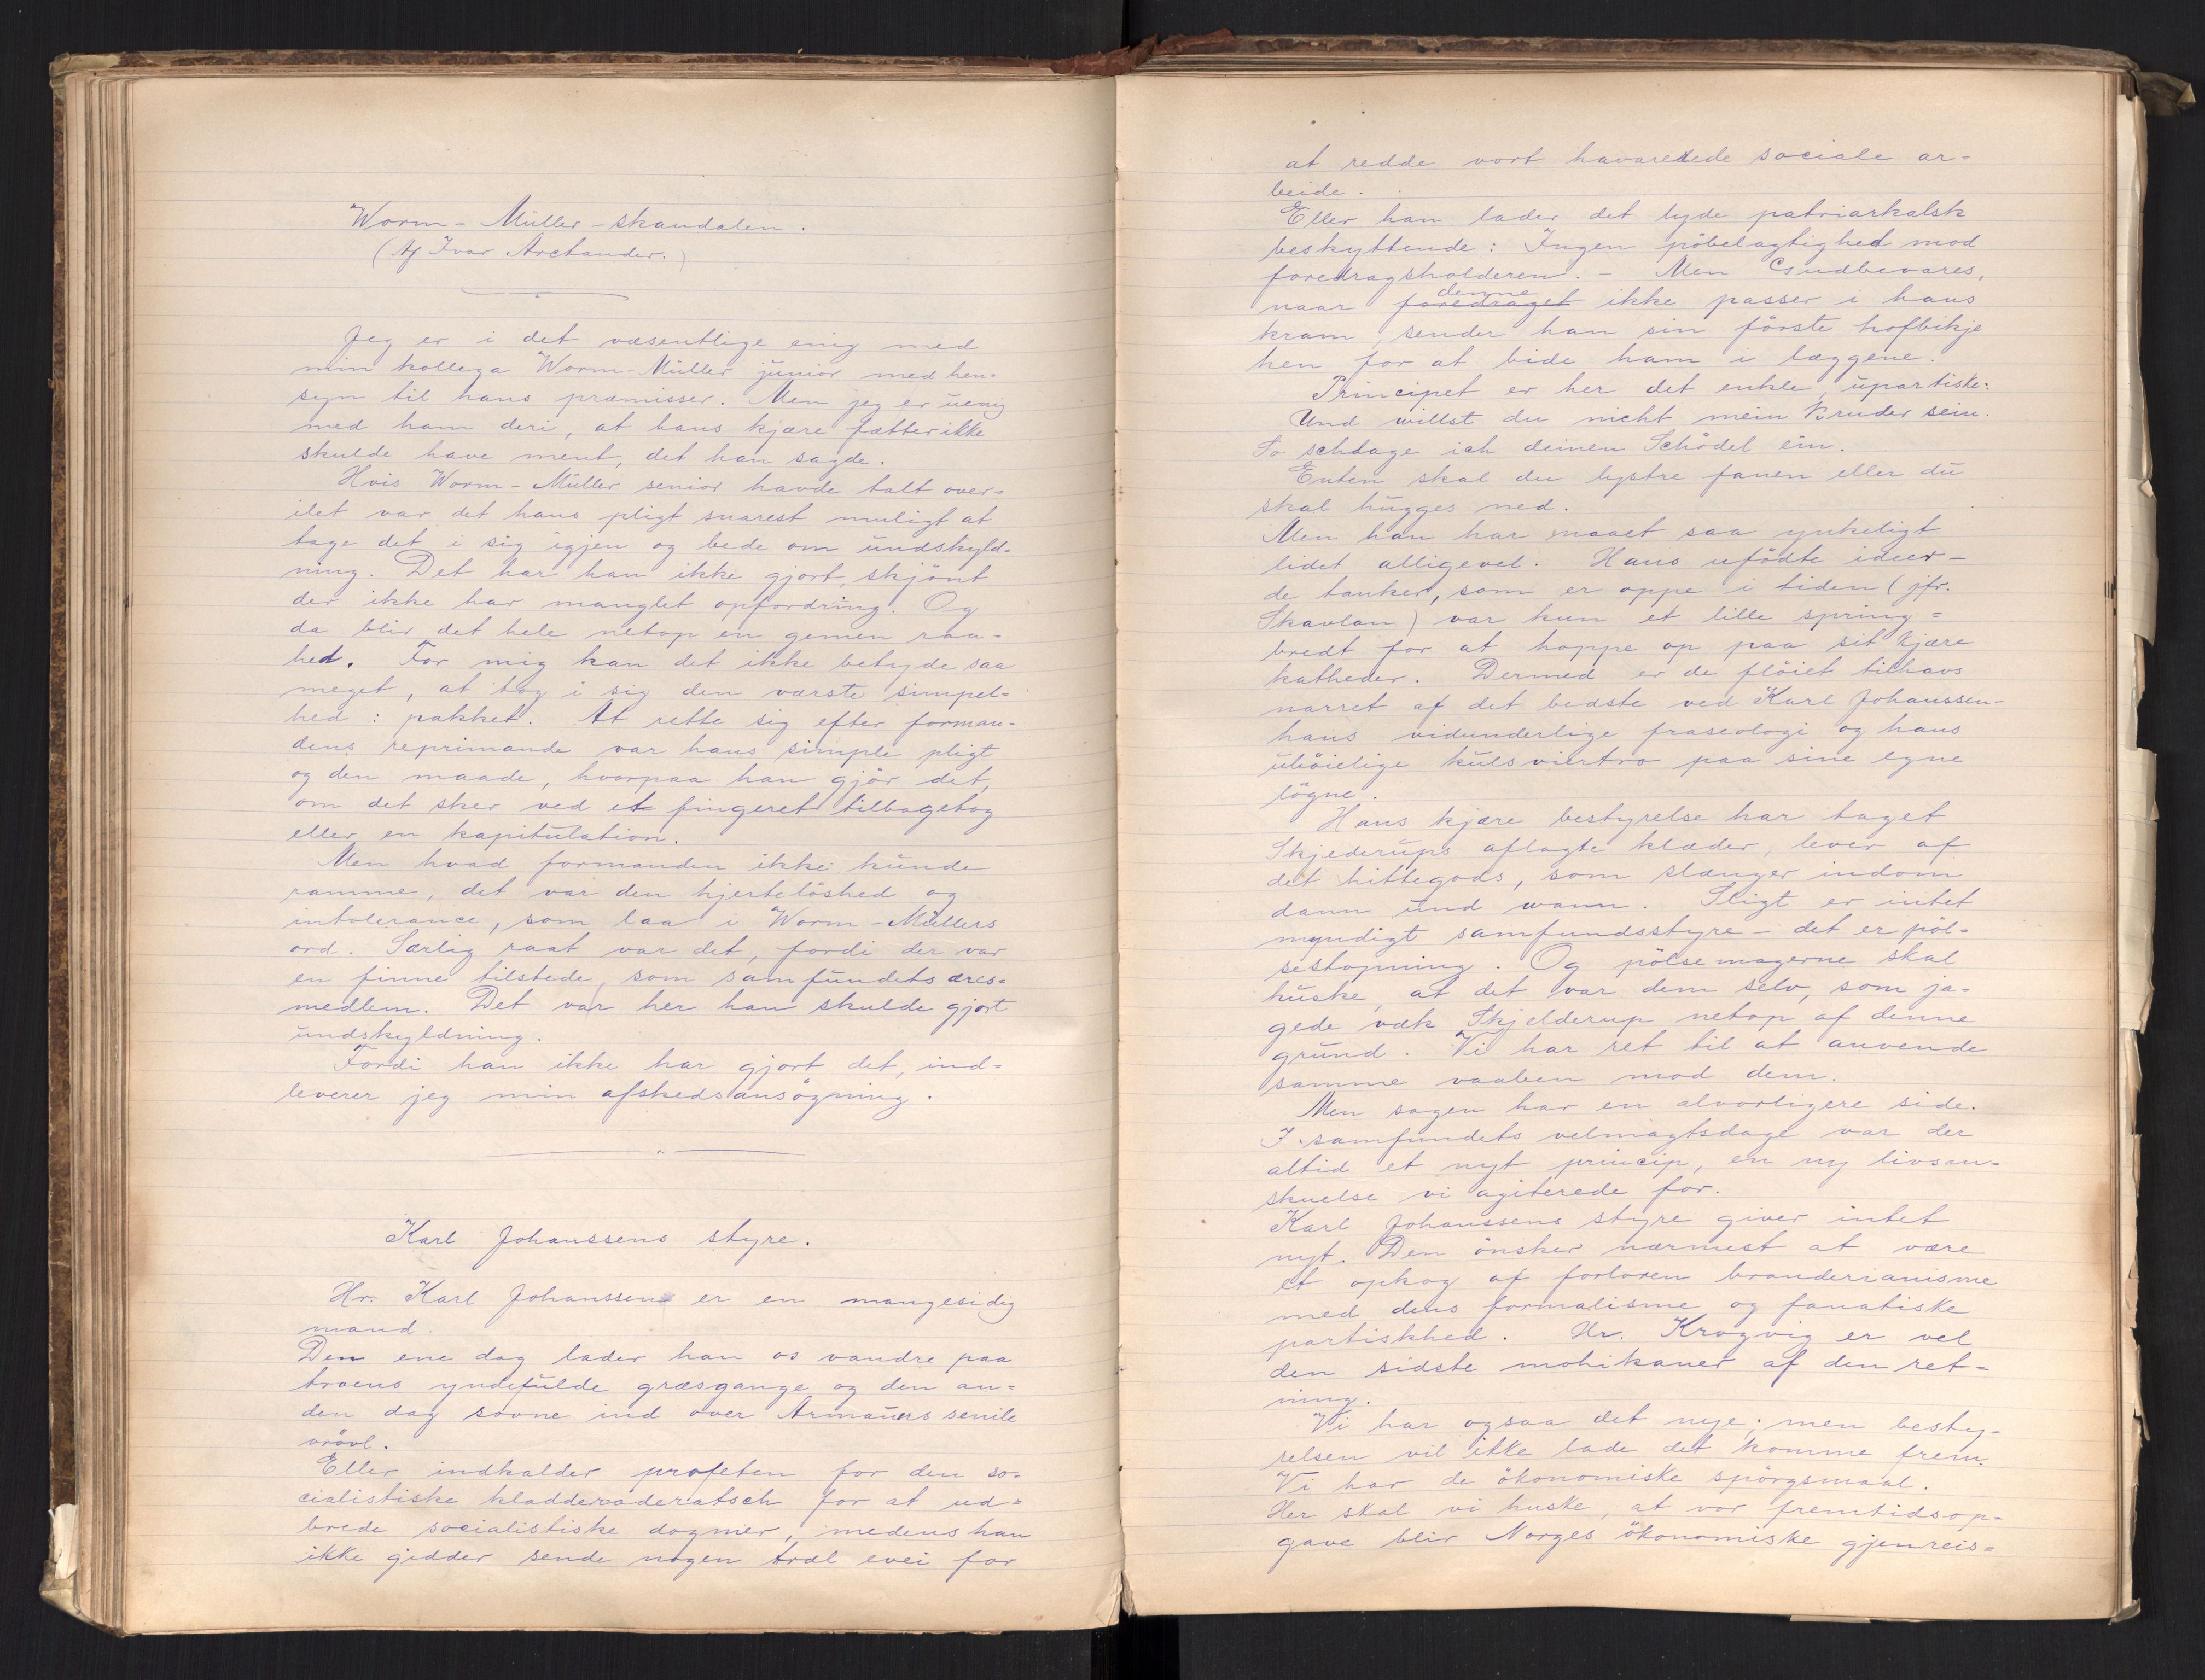 Worm-Müller-skandalen.
(Af Ivar Arctander.)
Jeg er i det væsentlige enig med
min kollega Worm-Müller junior med hen-
syn til hans præmisser. Men jeg er uenig
med ham deri, at hans kjære fætter ikke
skulde have ment, det han sagde.
Hvis Worm-Müller senior havde talt over-
ilet var det hans pligt snarest muligt at
tage det i sig igjen og bede om undskyld-
ning. Det har han ikke gjort, skjönt
der ikke har manglet opfordring. Og
da blir det hele netop en gemen raa-
hed. For mig kan det ikke betyde saa
meget, at tog i sig den værste simpel-
hed: pakket. At rette sig efter forman-
dens reprimande var hans simple pligt
og den maade, hvorpaa han gjör det,
om det sker ved et fingeret tilbagetog
eller en kapitulation.
Men hvad formanden ikke kunde
ramme, det var den hjertelöshed og
intolerance, som laa i Worm-Müllers
ord. Særlig raat var det, fordi der var
en finne tilstede, som samfundets æres-
medlem. Det var her han skulde gjort
undskyldning.
Fordi han ikke har gjort det, ind-
leverer jeg min afskedsansögning.
Karl Johanssens styre.
Hr. Karl Johanssen er en mangesidig
mand.
Den ene dag lader han os vandre paa
troens yndefulde græsgange og den an-
den dag sovne ind over Armauers senile
vrövl.
Eller indkalder profeten for den so-
cialistiske kladderaderatsch for at ud-
brede socialistiske dogmer, medens han
ikke gidder sende nogen træl evei for
at redde vort havarerede sociale ar-
beide.
Eller han lader det lyde patriarkalsk
beskyttende: Ingen pöbelagtighed mod
foredragsholderen. - Men Gudbevares,
naar foredraget denne ikke passer i hans
kram, sender han sin förste hofbikje
hen for at bide ham i læggene.
Principet er her det enkle, upartiske:
Und willst du nicht mein Bruder sein.
So schlage ich deinen Schödel ein.
Enten skal du lystre fanen eller du
skal hugges ned.
Men han har maaet saa ynkeligt
lidet alligevel. Hans ufödte ideer -
de tanker, som er oppe i tiden (jfr.
Skavlan) var kun et lille spring-
bredt for at hoppe op paa sit kjære
katheder. Dermed er de flöiet tilhavs
narret af det bedste ved Karl Johanssen -
hans vidunderlige fraseologi og hans
uböielige kulsviertro paa sine egne
lögne.
Hans kjære bestyrelse har taget
Skjederups aflagte klæder, lever af
det hittegods, som slænger indom
dann und wann. Sligt er intet
myndigt samfundsstyre - det er pöl-
sestopning. Og pölsemagerne skal
huske, at det var dem selv, som ja-
gede væk Skjelderup netop af denne
grund. Vi har ret til at anvende
samme vaaben mod dem.
Men sagen har en alvorligere side.
I samfundets velmagtsdage var der
altid et nyt princip, en ny livsan-
skuelse vi agiterede for.
Karl Johanssens styre giver intet
nyt. Den önsker nærmest at være
et opkog af forloren branderianisme
med dens formalisme og fanatiske
partiskhed. Hr. Krogvig er vel
den sidste mohikaner af den ret-
ning.
Vi har ogsaa det nye; men besty-
relsen vil ikke lade det komme frem.
Vi har de ökonomiske spörgsmaal.
Her skal vi huske, at vor fremtidsop-
gave blir Norges ökonomiske gjenreis-